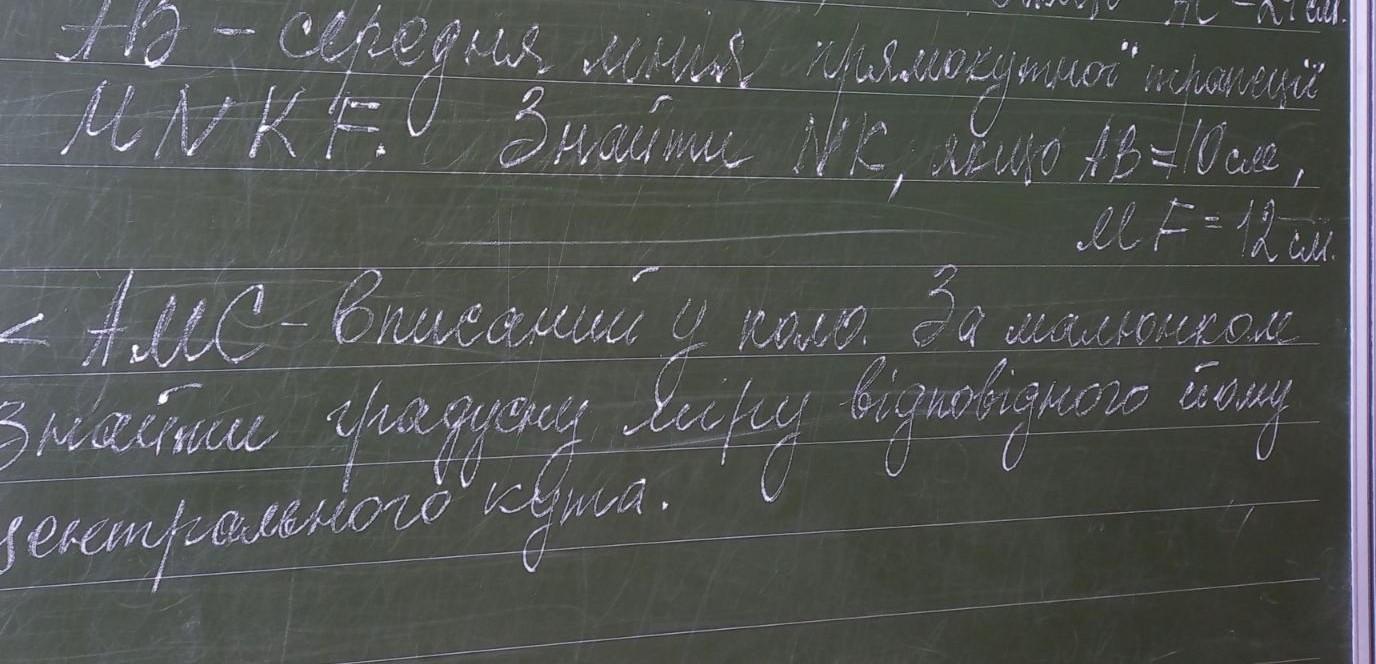 AC = 24 см.
AB – середня лінія прямокутної трапеції
MNKF. Знайти NK, якщо AB = 10 см,
MF = 12 см.
< AMC – вписаний у коло. За малюнком
знайти градусну міру відповідного йому
центрального кута.